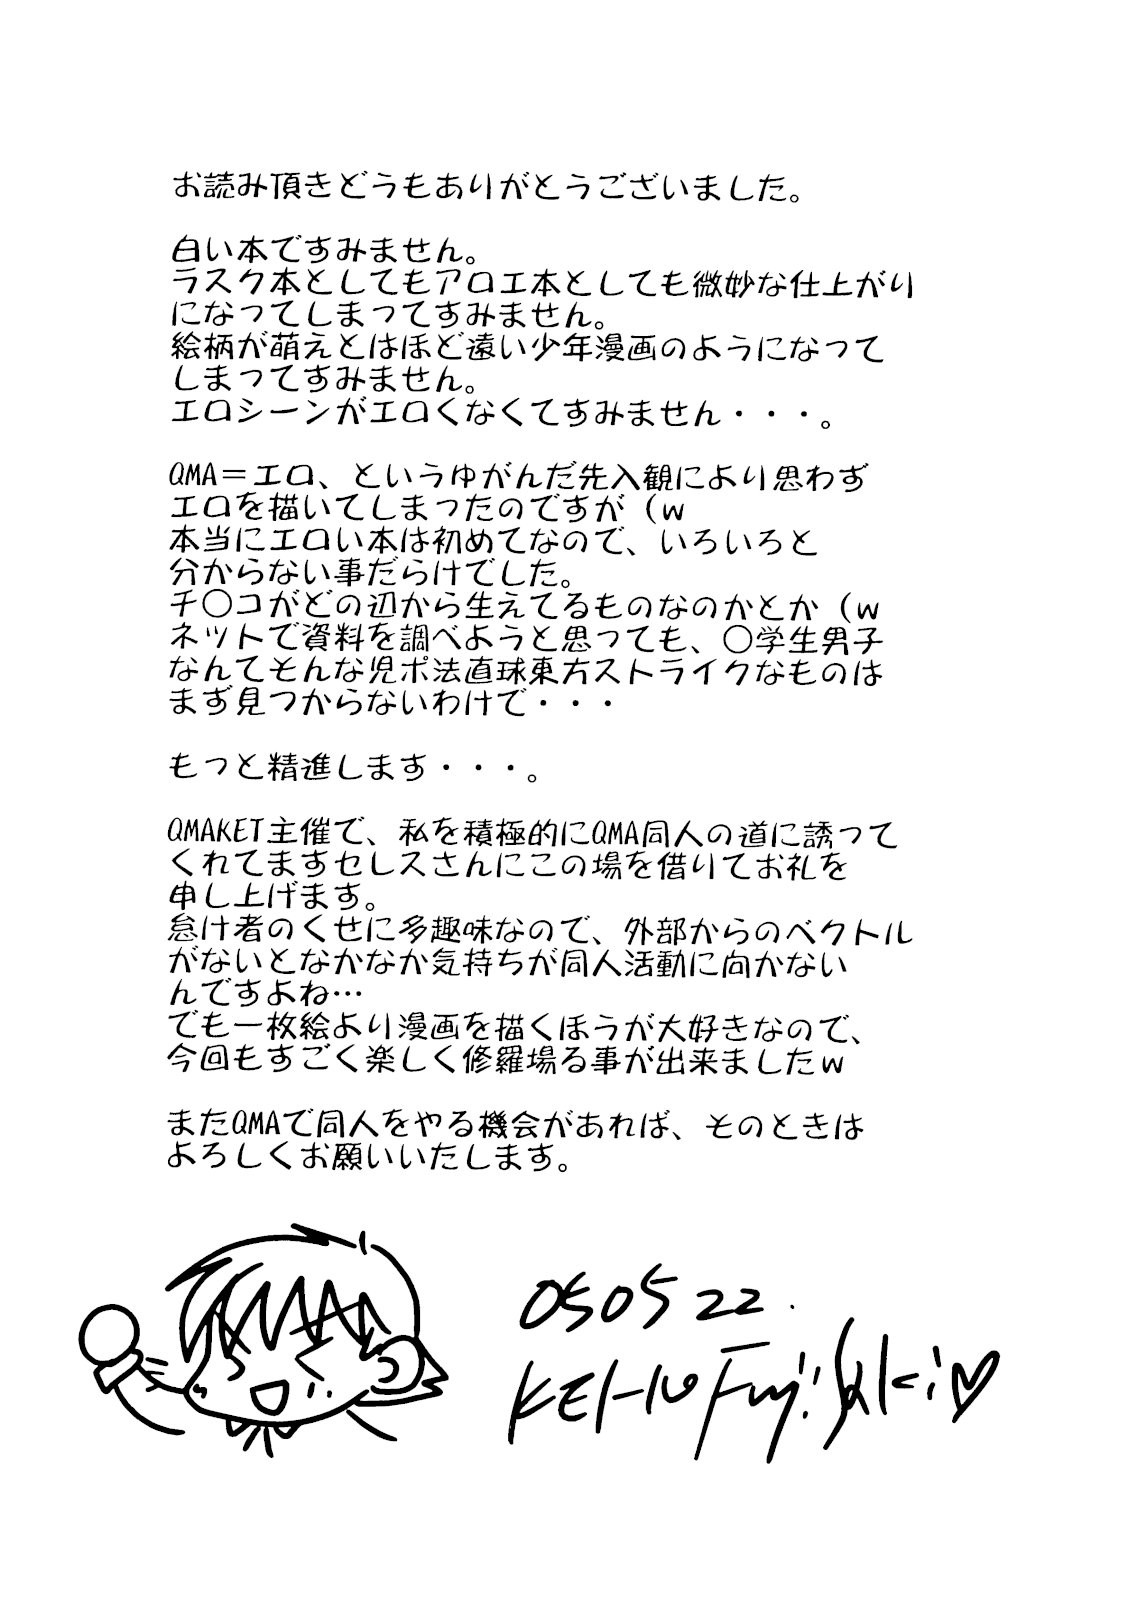 お読み頂きどうもありがとうございました。
白い本ですみません。
ラスク本としてもアロエ本としても微妙な仕上がり
になってしまってすみません。
絵柄が萌えとはほど遠い少年漫画のようになって
しまってすみません。
エロシーンがエロくなくてすみません・・・。
QMA＝エロ、というゆがんだ先入観により思わず
エロを描いてしまったのですが（w
本当にエロい本は初めてなので、いろいろと
分からない事だらけでした。
チ○コがどの辺から生えてるものなのかとか（w
ネットで資料を調べようと思っても、○学生男子
なんてそんな児ポ法直球東方ストライクなものは
まず見つからないわけで・・・
もっと精進します・・・。
QMAKET主催で、私を積極的にQMA同人の道に誘って
くれてますセレスさんにこの場を借りてお礼を
申し上げます。
怠け者のくせに多趣味なので、外部からのベクトル
がないとなかなか気持ちが同人活動に向かない
んですよね…
でも一枚絵より漫画を描くほうが大好きなので、
今回もすごく楽しく修羅場る事が出来ましたｗ
またQMAで同人をやる機会があれば、そのときは
よろしくお願いいたします。
050522.